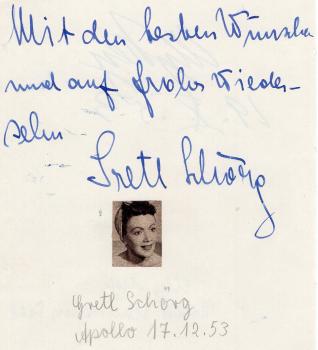 Mit den besten Wünschen
und auf frohes Wieder-
sehn
Gretl Schörg
Gretl Schörg
Apollo 17.12.53